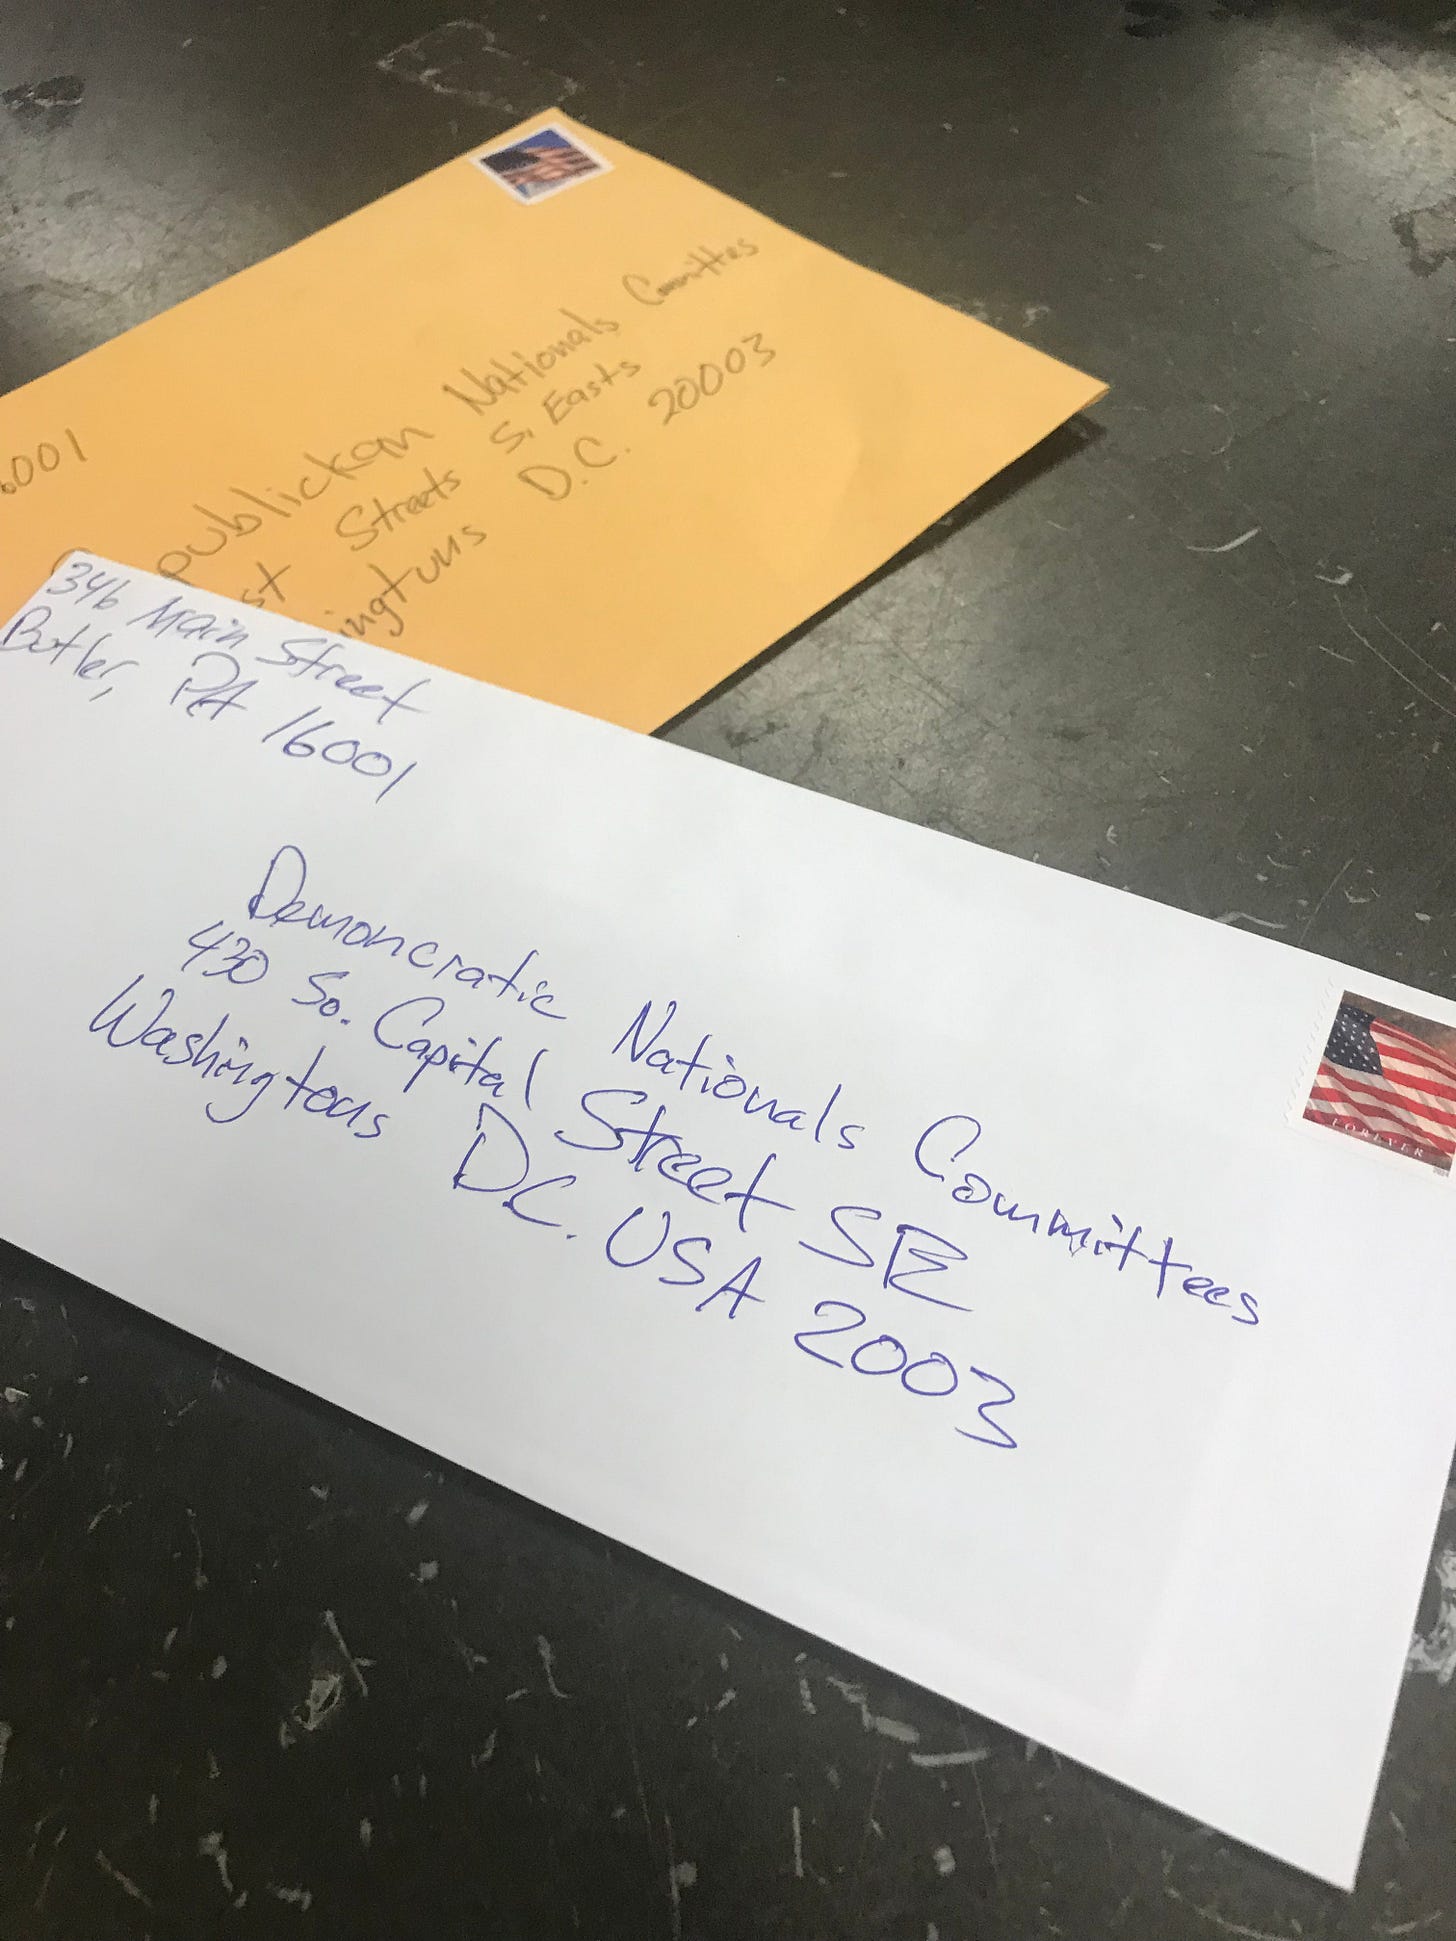 6001
publickan Nationals Committes
st Streets S. Easts
ingtuns D.C. 20003
346 Main Street
Butler, PA 16001
Demoncratic Nationals Committees
430 So. Capital Street SE
Washingtons D.C. USA 20003
FOREVER